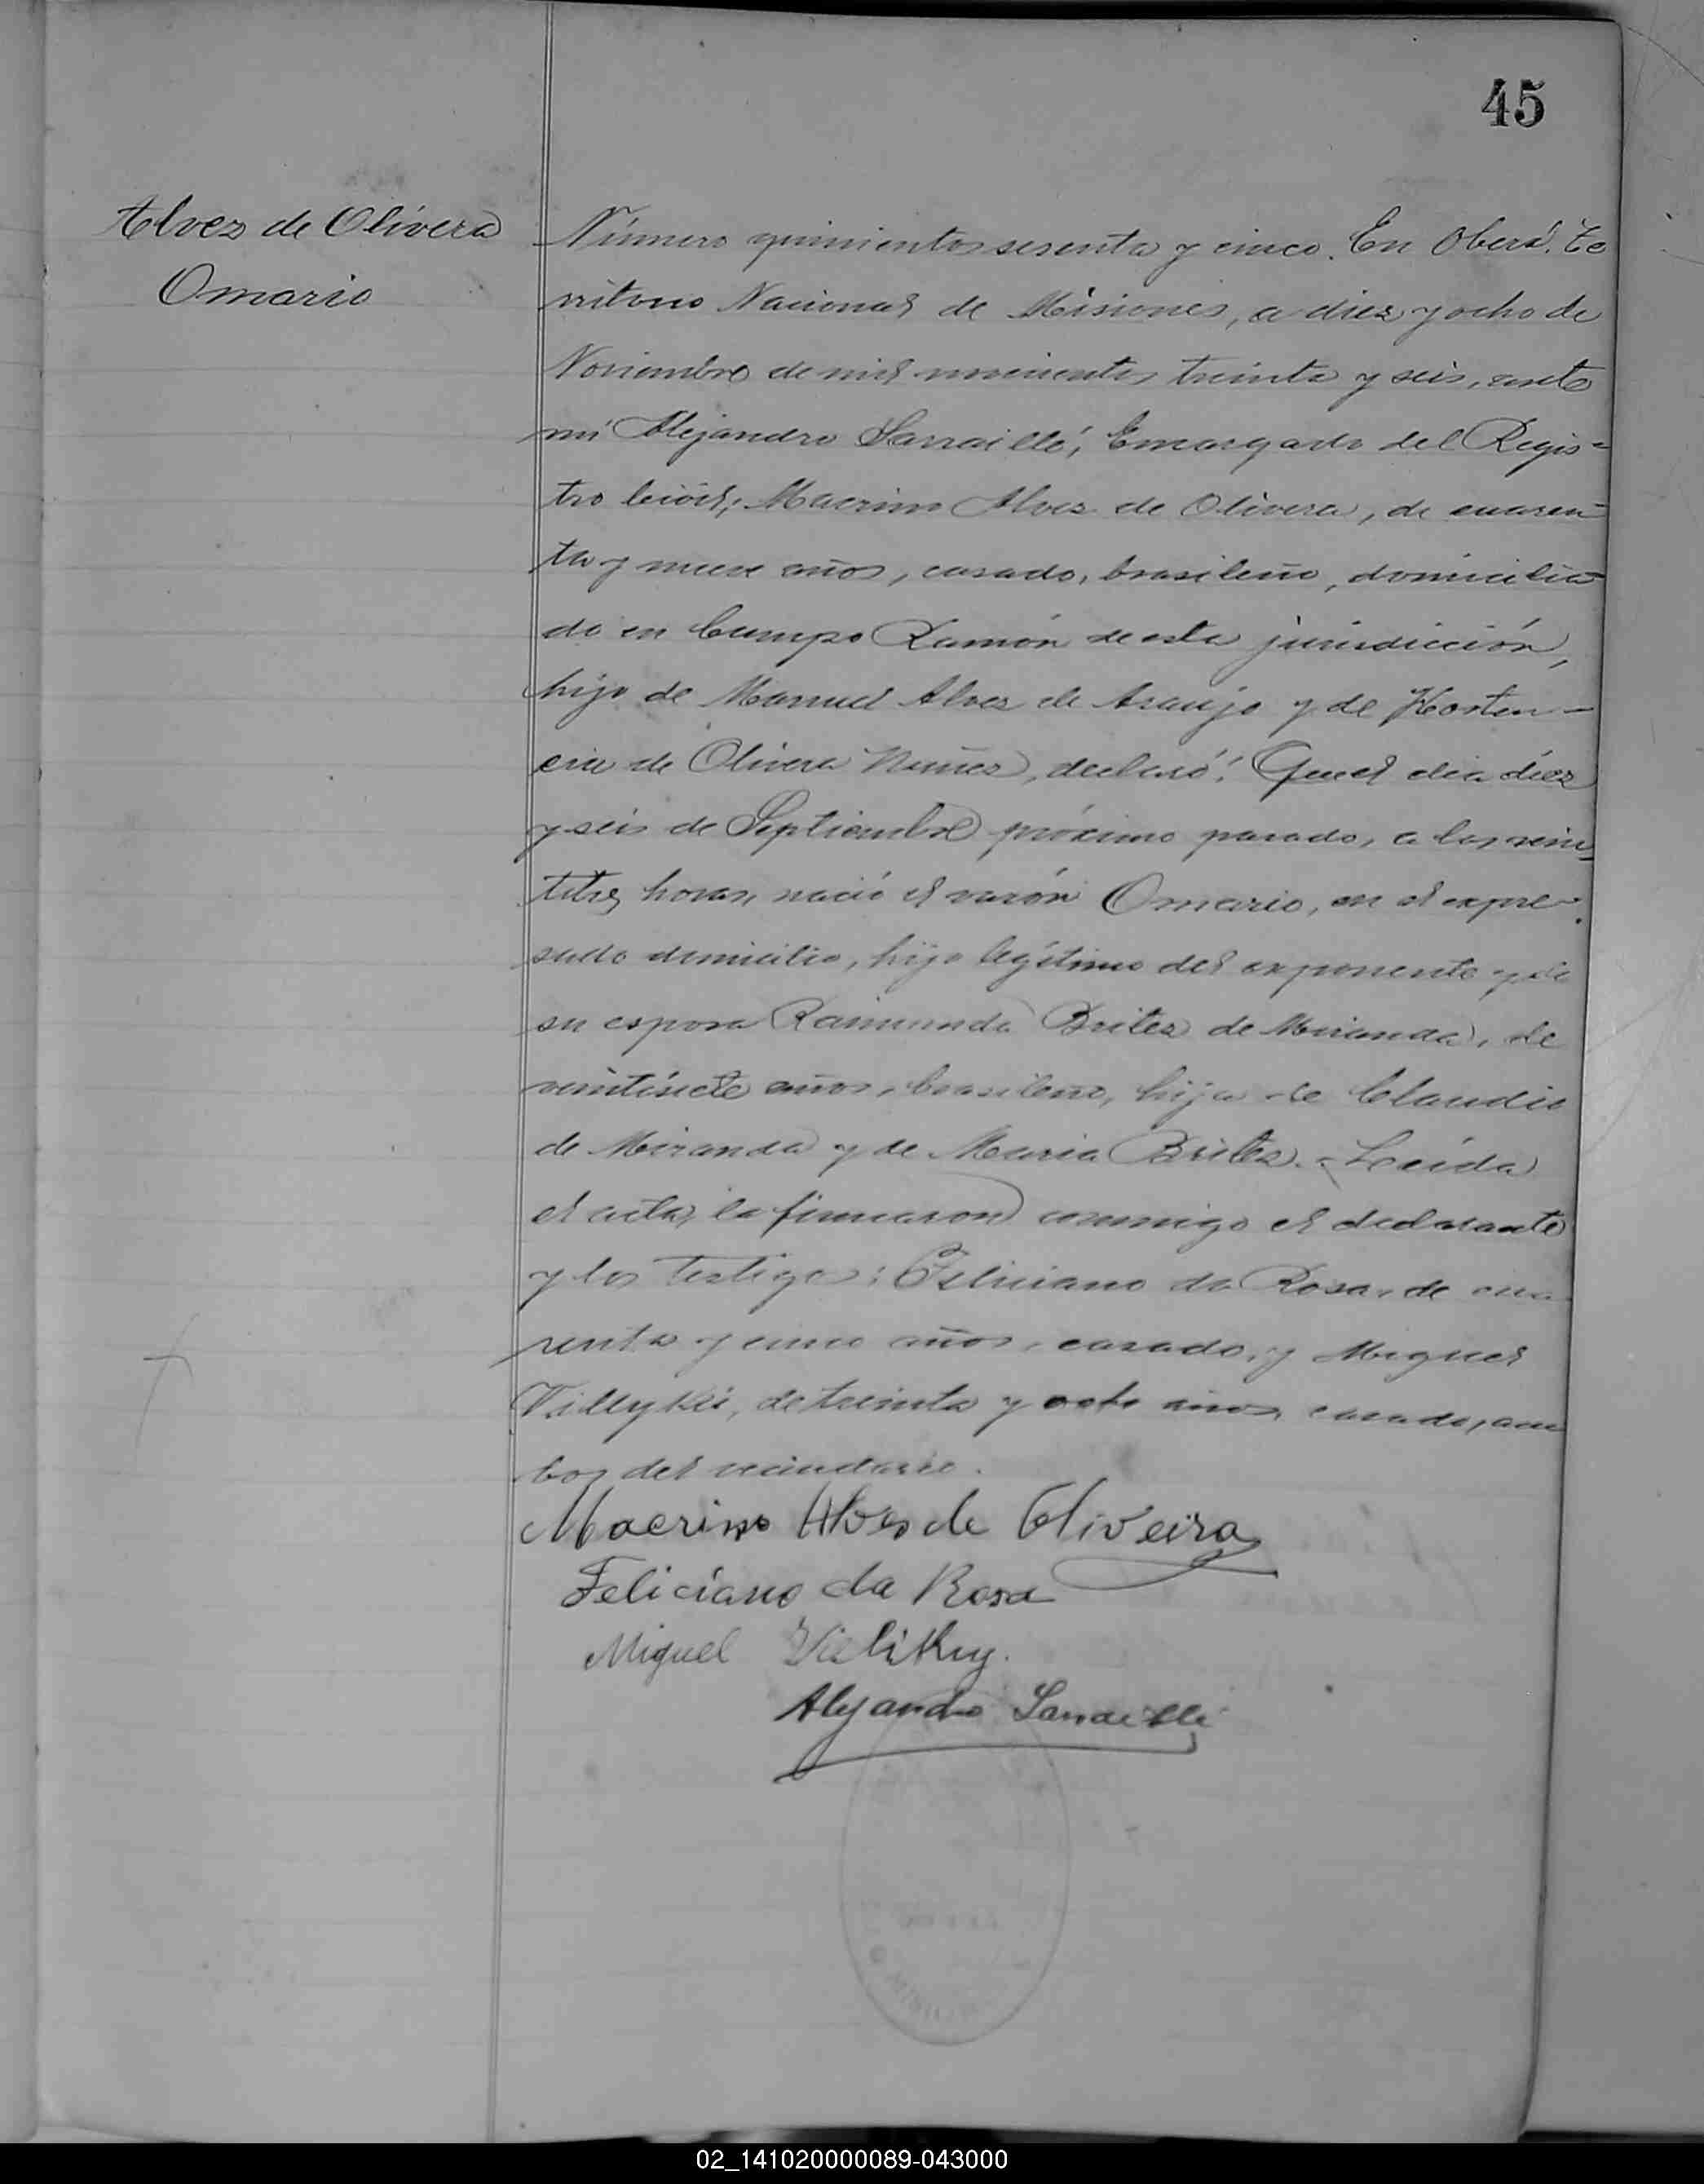 45
Alvez de Olivera
Omario
Número quinientos sesenta y cinco. En Oberá, Te
rritorio Nacional de Misiones, a diez y ocho de
Noviembre de mil novecientos treinta y seis, ante
mí Alejandro Sarraillé, Encargado del Regis=
tro Civil; Macrino Alvez de Olivera, de cuaren=
ta y nueve años, casado, brasileño, domicilia=
do en Campo Ramón de esta jurisdicción,
hijo de Manuel Alvez de Araujo y de Horten-
cia de Olivera Nuñez, declaró: Que el dia diez
y seis de Septiembre próximo pasado, a las vein
titres horas, nació el varón Omario, en el expre-
sado domicilio, hijo legítimo del exponente y de
su esposa Raimunda Britez de Miranda, de
veintisiete años, brasileña, hija de Claudio
de Miranda y de Maria Britez.- Leída
el acta, la firmaron conmigo el declarante
y los testigos: Feliciano da Rosa, de cua
renta y cinco años, casado, y Miguel
de treinta y ocho años, casado, am
bos del vecindario.
Macrino Alves de Oliveira
Feliciano da Rosa
Miguel
Alejandro Sarraillé
02_141020000089-043000